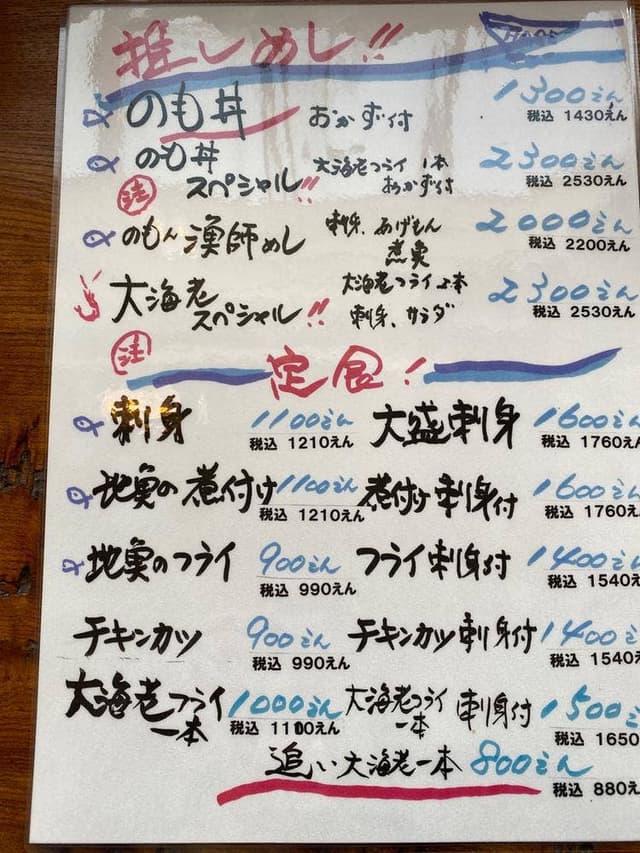 推しめし!!
のも丼 おかず付 1300えん
税込 1430えん
のも丼 大海老フライ 1本 2300えん
スペシャル!! おかず付 税込 2530えん
のもん漁師めし 刺身、あげもん 2000えん
煮魚 税込 2200えん
大海老 大海老フライ2本 2300えん
スペシャル!! 刺身、サラダ 税込 2530えん
定食!
刺身 1100えん 大盛刺身 1600えん
税込 1210えん 税込 1760えん
地魚の煮付け 1100えん 煮付け刺身付 1600えん
税込 1210えん 税込 1760え
地魚のフライ 900えん フライ刺身付 1400えん
税込 990えん 税込 1540え
チキンカツ 900えん チキンカツ刺身付 1400えん
税込 990えん 税込 1540え
大海老フライ 1000えん 大海老フライ 刺身付 1500え
一本 税込 1100えん 一本 税込 1650
追い大海老一本 800えん
税込 880え